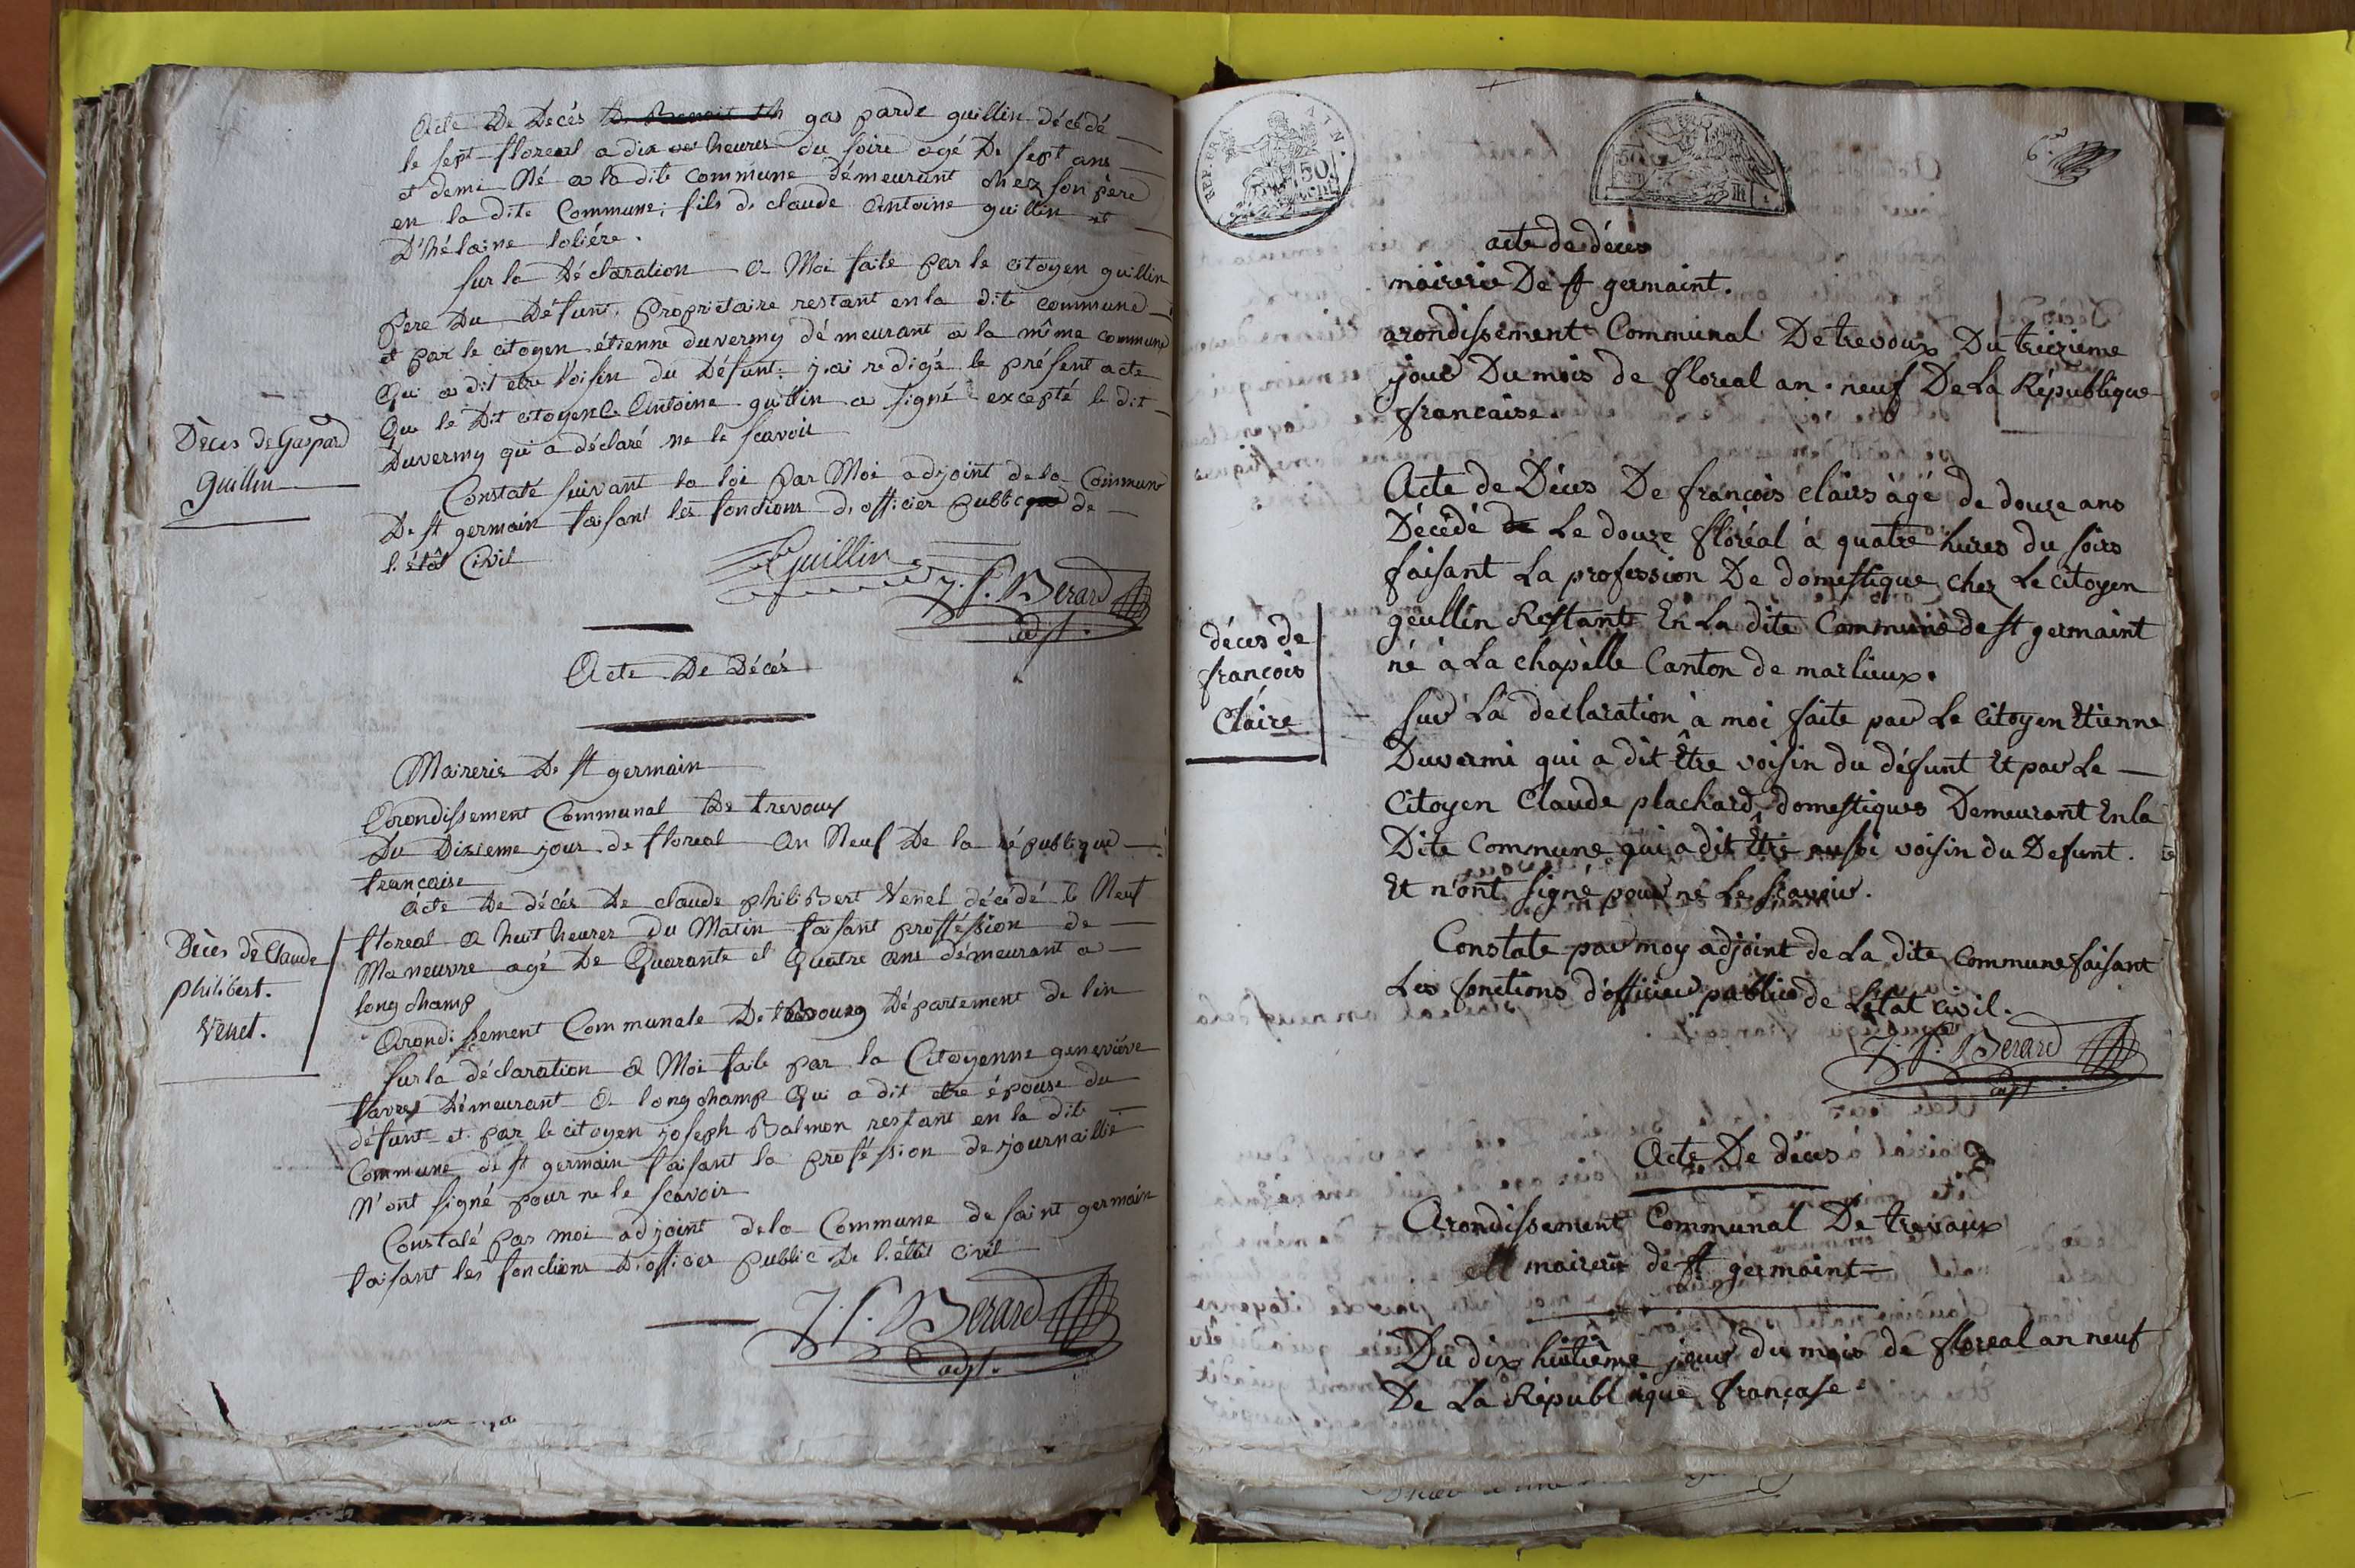 Acte De Decés gas parde guillin décédé
le sept floreal a dix heures du soire agé De sept ans
et demi Né a la dite commune démeurant chez son père
en la dite Commune; fils de claude Antoine guillin et
D'hélaine loliére.
sur la Déclaration a Moi faite par le citoyen guillin
père Du Défunt, propriétaire restant en la dite commune
et par le citoyen étienne duvermy démeurant a la même commune
Qui a dit etre Voisin du Défunt; j'ai redigé le présent acte
Que le Dit citoyen C. Antoine guillin a signé excepté le dit
Duvermy qui a déclaré ne le scavoir
Décés de Gaspard
Guillin
Constaté suivant la loi par Moi adjoint de la Commune
De st germain faisant les fonctions d'officier public de
l'état Civil
Guillin
J. P. Berard
adjt.
Acte De Décés
Maireris De st germain
Arondissement Communal De trevoux
Du Dixieme jour de floreal An Neuf De la république
francaise
Acte De décés De claude philiBert Venet décédé le Neuf
floreal a huit heures du Matin faisant proffésion de
Maneuvre agé De Quarante et Quatre ans démeurant a
long champ
Décés de Claude
philibert.
Venet.
Arondissement Communale De Bourg Département de l'in
sur la déclaration a Moi faite par la Citoyenne geneviéve
favre Démeurant a long champ Qui a dit etre épouse du
défunt et par le citoyen joseph Balmon restant en la dite
Commune de st germain faisant la proféssion de journaillié
N'ont signé pour ne le scavoir
Constaté par moi adjoint de la Commune de saint germain
faisant les fonctions D'officier public De l'état Civil
J. P. Berard
adjt.
REP. FRA. AIN.
50
CENT.
50
CEN
6.
acte de décés
mairerie De st germaint.
arondissement Communal De trevoux Du treizieme
jour Du mois de floreal an neuf De La République
francaise.
Acte de Décés De françois clairs àgé de douze ans
Décédé Le douze floréal à quatre hures du soirs
faisant La profession De domestique chez Le citoyen
geullin Restant En La dite Commune de st germaint
né à La chapèlle Canton de marlieux.
décés de
françois
Claire
sur La declaration à moi faite par Le citoyen Etienne
Duvermi qui a dit Être voisin du défunt Et par Le
Citoyen Claude plachard, domestiques Demeurant En la
Dite Commune qui a dit Être aussi voisin du Defunt.
Et n'ont signé pour ne Le scavoir.
Constate par moy adjoint de La dite Commune faisant
Les fonctions d'officier public de L'état Civil.
J. P. Berard
adjt.
Acte De décés
Arondissement Communal De trevoux
mairerie de st germaint
Du dix huitième jour du mois de floreal an neuf
De La République françase